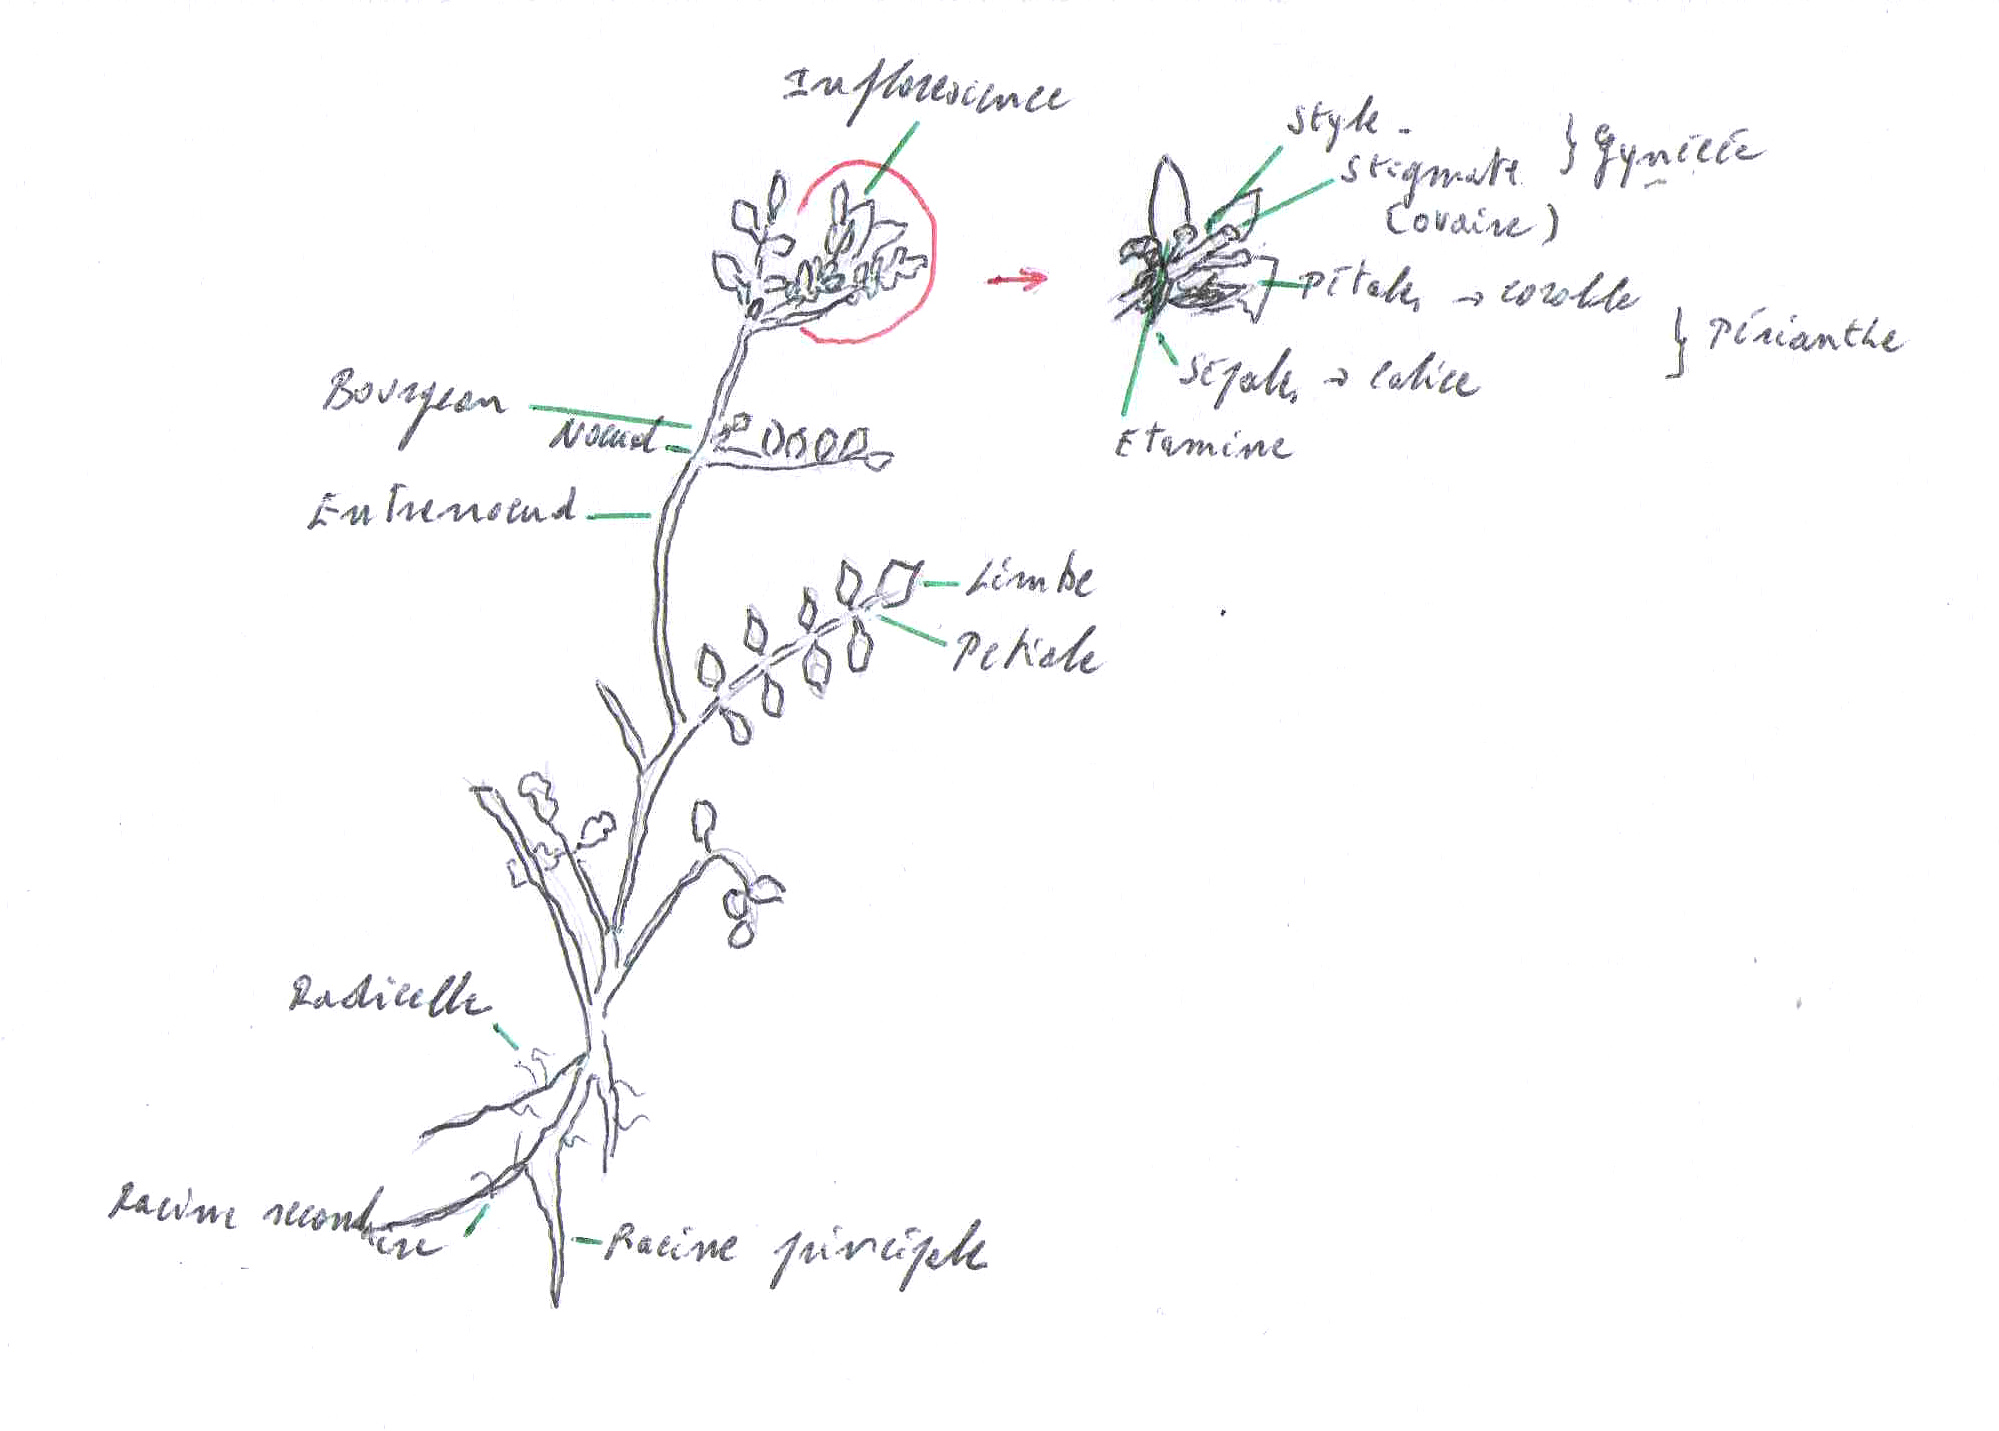 Inflorescence
Style -
Stigmate
(ovaire)
} Gynécée
Pétales → corolle
Sépales → calice
} Périanthe
Etamine
Bourgeon
Noeud
Entrenoeud
Limbe
Petiole
Radicelle
Racine secondaire
Racine principale